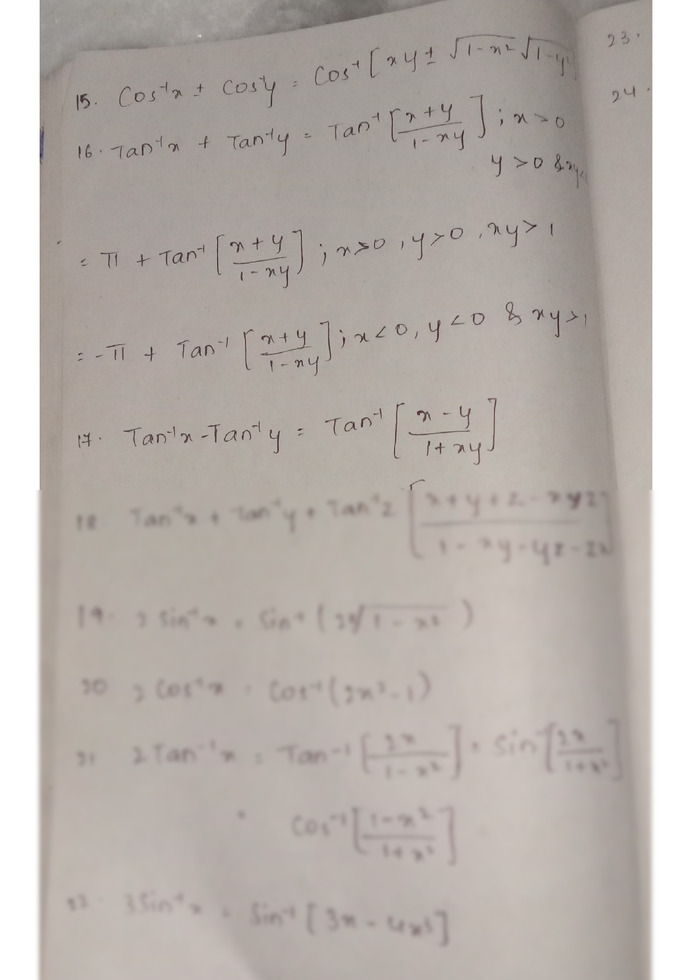 23.
24.
15. Cos⁻¹x ± Cos⁻¹y = Cos⁻¹[xy ± √1-x² √1-y²
16. Tan⁻¹x + Tan⁻¹y = Tan⁻¹[x+y/1-xy] ; x>0
y>0 & xy<
= π + Tan⁻¹[x+y/1-xy] ; x>0, y>0, xy>1
= -π + Tan⁻¹[x+y/1-xy] ; x<0, y<0 & xy>1
17. Tan⁻¹x - Tan⁻¹y = Tan⁻¹[x-y/1+xy]
18. Tan⁻¹x + Tan⁻¹y + Tan⁻¹z [x+y+z-xyz/1-xy-yz-zx]
19. 2 Sin⁻¹x = Sin⁻¹(2x√1-x²)
20 2 Cos⁻¹x = Cos⁻¹(2x²-1)
21 2 Tan⁻¹x = Tan⁻¹[2x/1-x²] = Sin⁻¹[2x/1+x²]
= Cos⁻¹[1-x²/1+x²]
22. 3Sin⁻¹x = Sin⁻¹[3x-4x³]